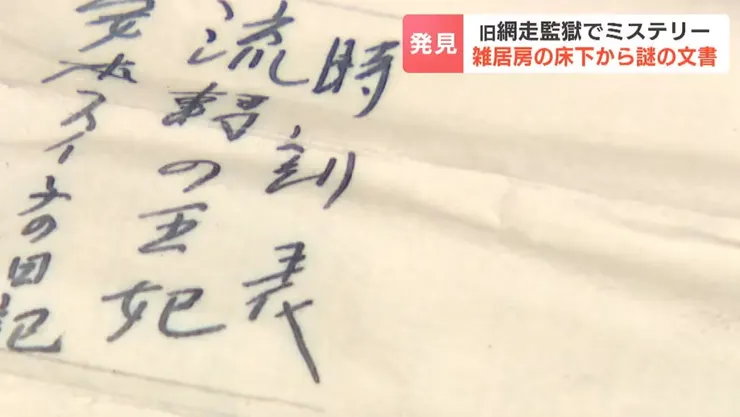 発見
旧網走監獄でミステリー
雑居房の床下から謎の文書
時刻表
流転の王妃
スイ子の日記